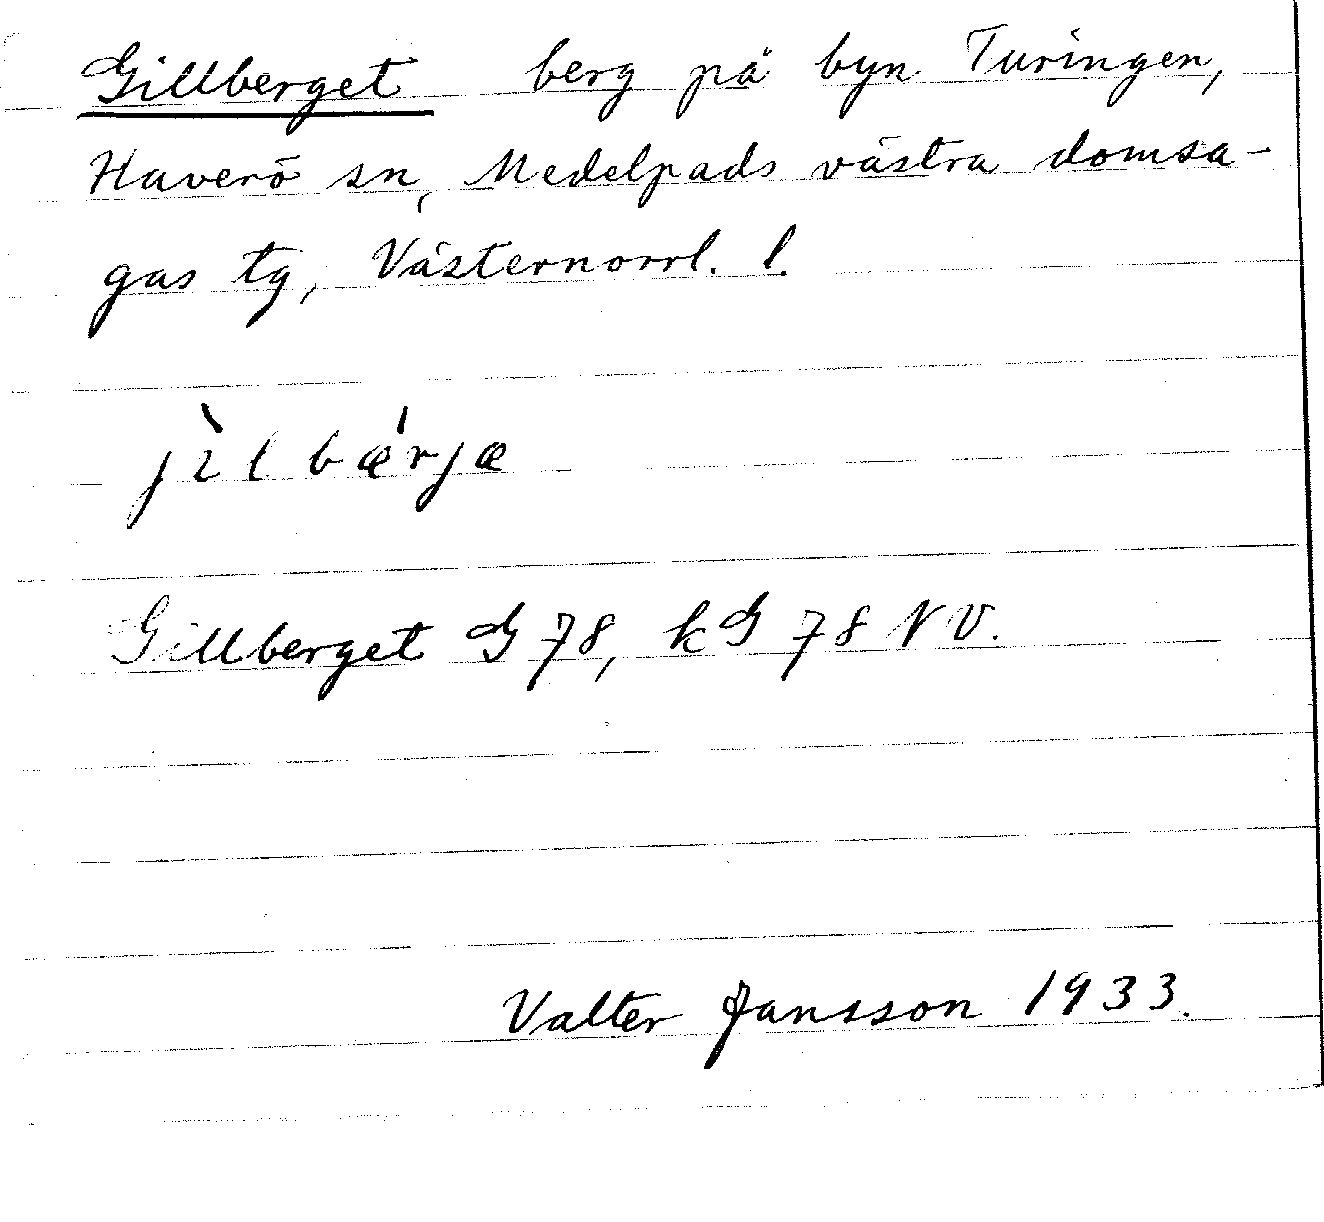 Gillberget berg på byn Turingen,
Haverö sn, Medelpads västra domsa-
gas tg, Västernorrl. l.
jìlbǽrjæ
Gillberget G 78, kG 78 NV.
Valter Jansson 1933.